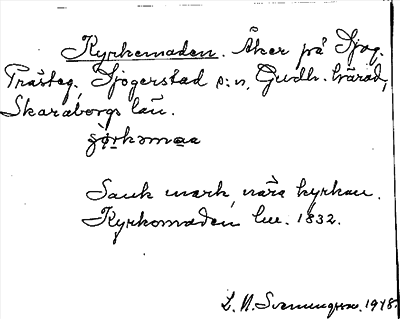 Kyrkemaden. Åker på Sjog.
Prästeg. Sjogerstad s:n, Gudh. härad,
Skaraborgs län.
Sank mark, nära kyrkan.
Kyrkomaden lm. 1832.
L. N. Svenungsson. 1948.